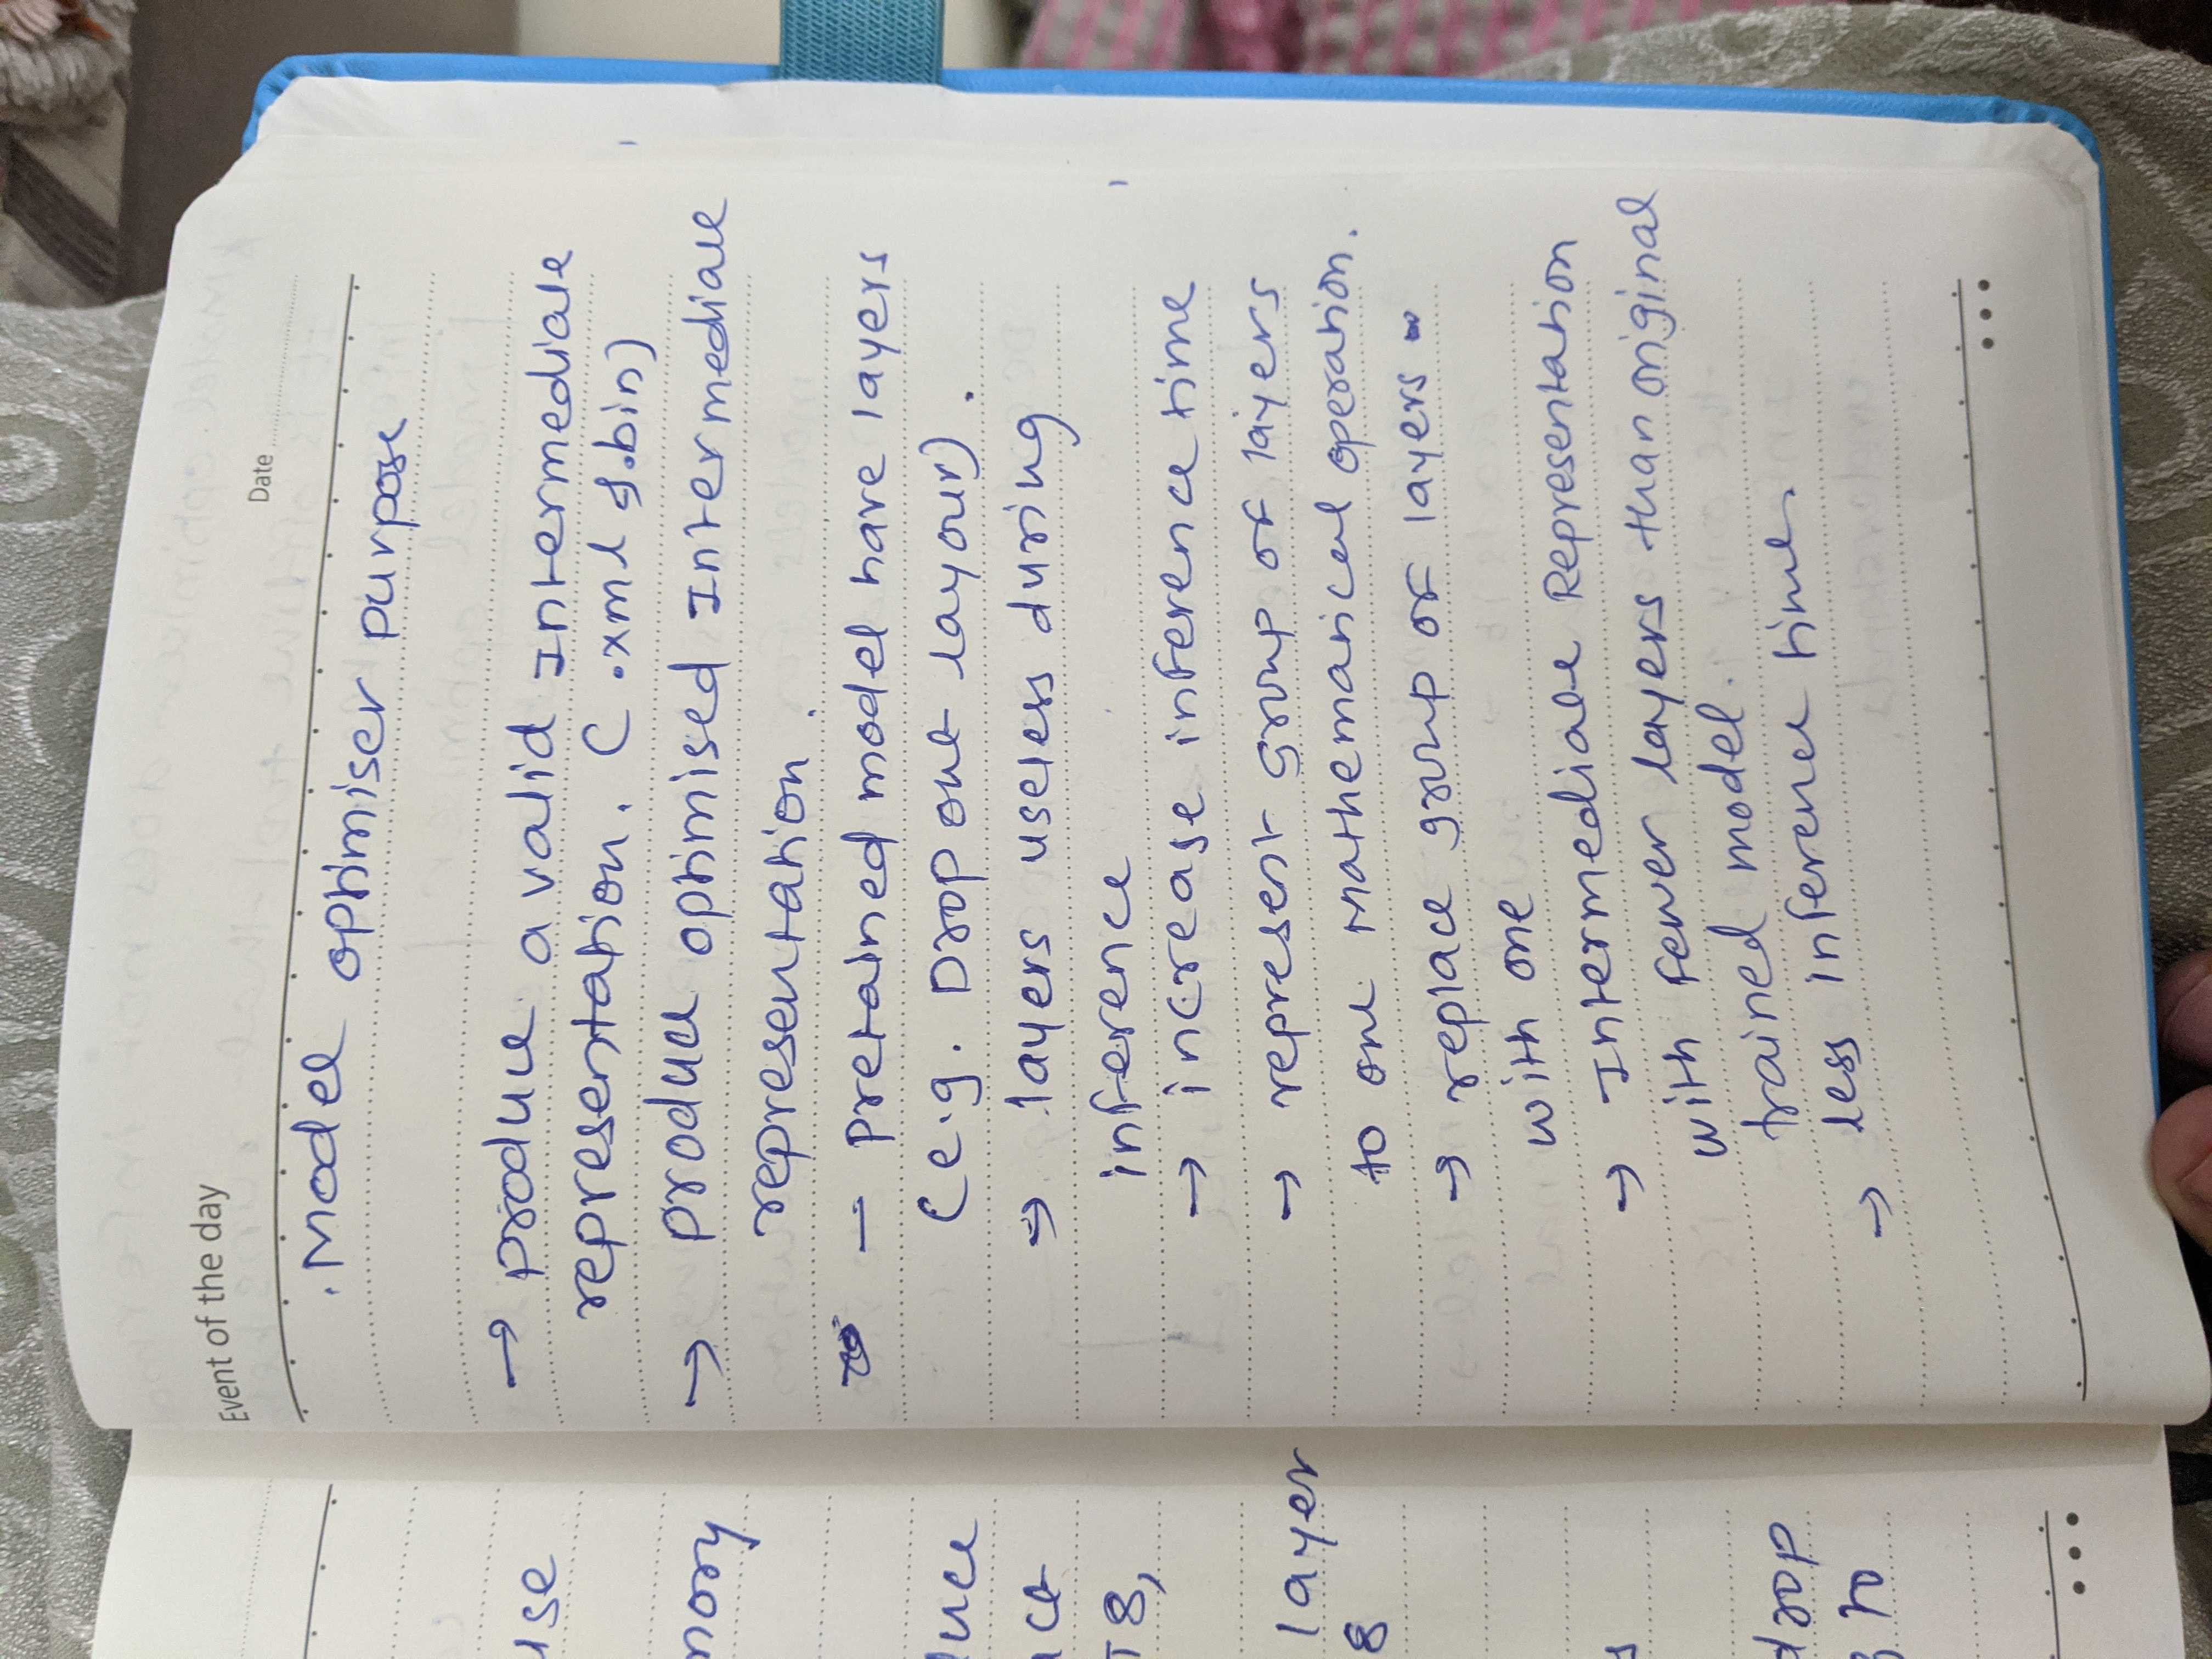 Event of the day
Date
Model optimiser purpose
→ produce a valid Intermediate
representation. (.xml & .bin)
→ produce optimised Intermediate
representation.
- pretained model have layers
(e.g. Drop out layour).
⇒ layers useless during
inference
→ increase inference time
→ represent group of layers
to one mathematical operation.
→ replace group of layers
with one
→ Intermediate Representation
with fewer layers than original
trained model.
→ less inference time.
use
layer
8
drop